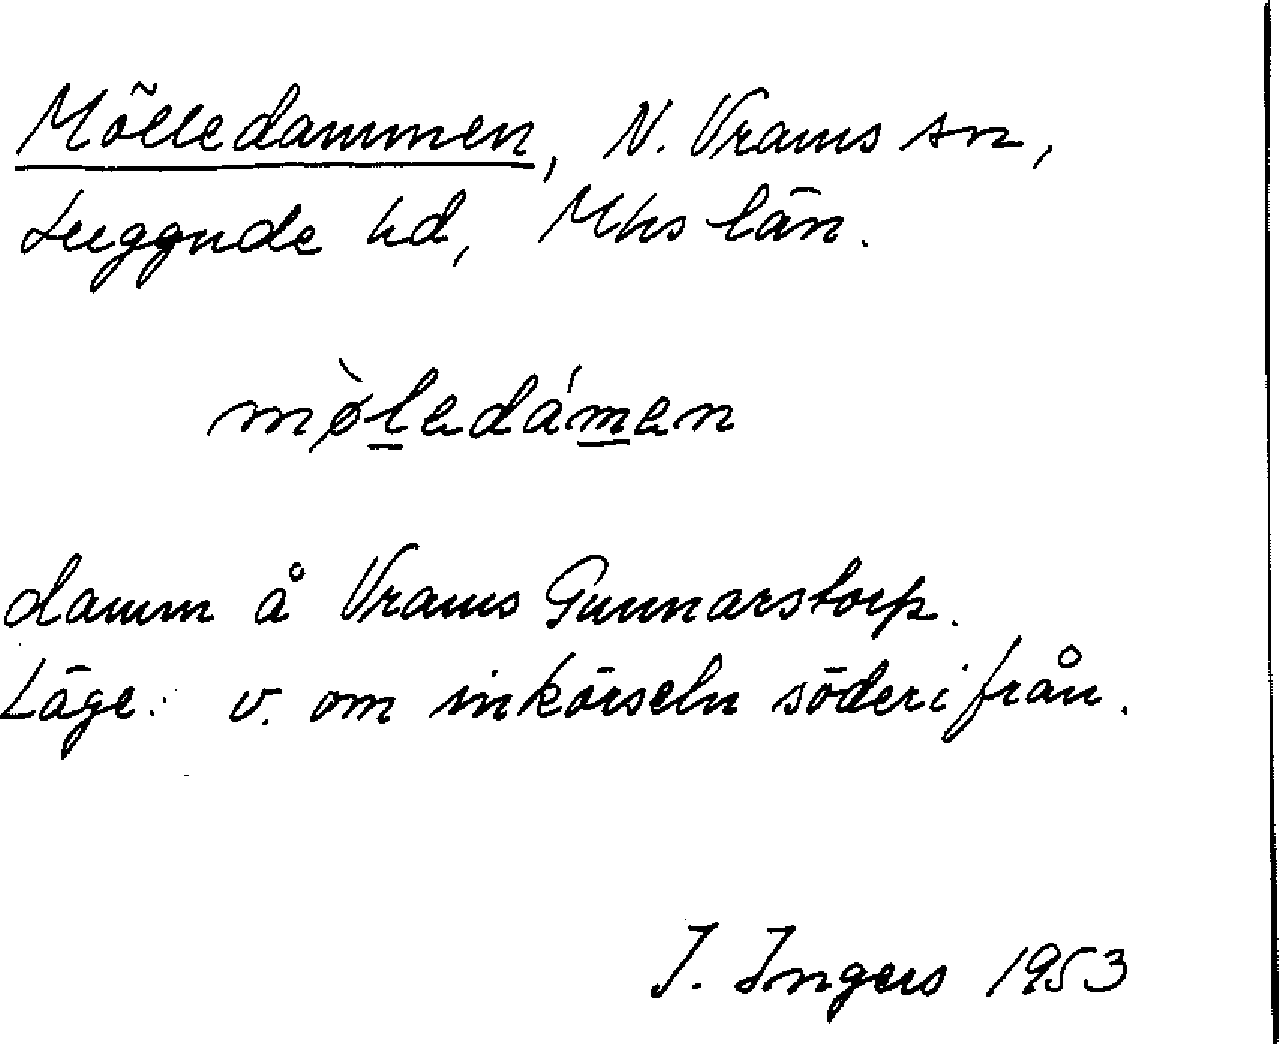 Mölledammen, N. Vrams sn,
Luggude hd, Mhs län.
mø̀l̲edám̲en
damm å Vrams Gunnarstorp.
Läge: v. om inkörseln söderifrån.
I. Ingers 1953